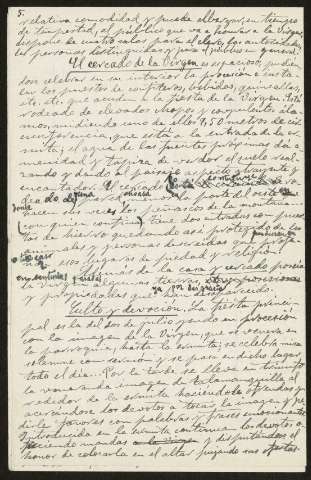 5.
relativa comodidad y puede albergar, en tiempo
de tempestad, al público que va a honrar a la Virgen,
dispone de una sala para el clero, las autoridades
y personas distinguidas, y para el público en general.
El cercado de la Virgen es espacioso, pudién-
dose celebrar en su interior la procesión e insta-
lar los puestos de confiteros, bebidas, quincallas,
etc. etc. que acuden a la fiesta de la Virgen. Está
rodeado de elevados chopos y corpulentos ála-
mos, midiendo uno de ellos 9,50 metros de cir-
cunferencia, que está a la entrada de la er-
mita; el agua de las fuentes próximas da a-
menidad y tapiza de verdor el suelo reali-
zando y dando al paisaje aspecto atrayente y
encantador. El cercado
hacen sus veces los peñascos de la montaña
con quien confina; tiene dos entradas con puer-
tas de hierro, quedando así protegido de los
animales y personas desaseadas que profa-
nan esos lugares de piedad y religión.
Además de la casa y cercado poseía
la Virgen algunas tierras
y propiedades que han desaparecido.
Culto y devoción. La fiesta princi-
pal es la del dos de julio y se va en procesión
con la imagen de la Virgen que se venera en
la parroquia, hasta la ermita; se celebra misa
solemne con sermón y se pasa en dicho lugar
todo el día. Por la tarde se lleva en triunfo
la venerada imagen de talamanquilla al
rededor de la ermita haciéndole ofrendas y
acercándose los devotos a tocar la imagen y pe-
dirle favores con palabras y frases emocionantes.
Introducida en la ermita continúan los devotos o-
freciendo mandas a la Virgen y disputándose el
honor de colocarla en el altar pujando sus ofertas